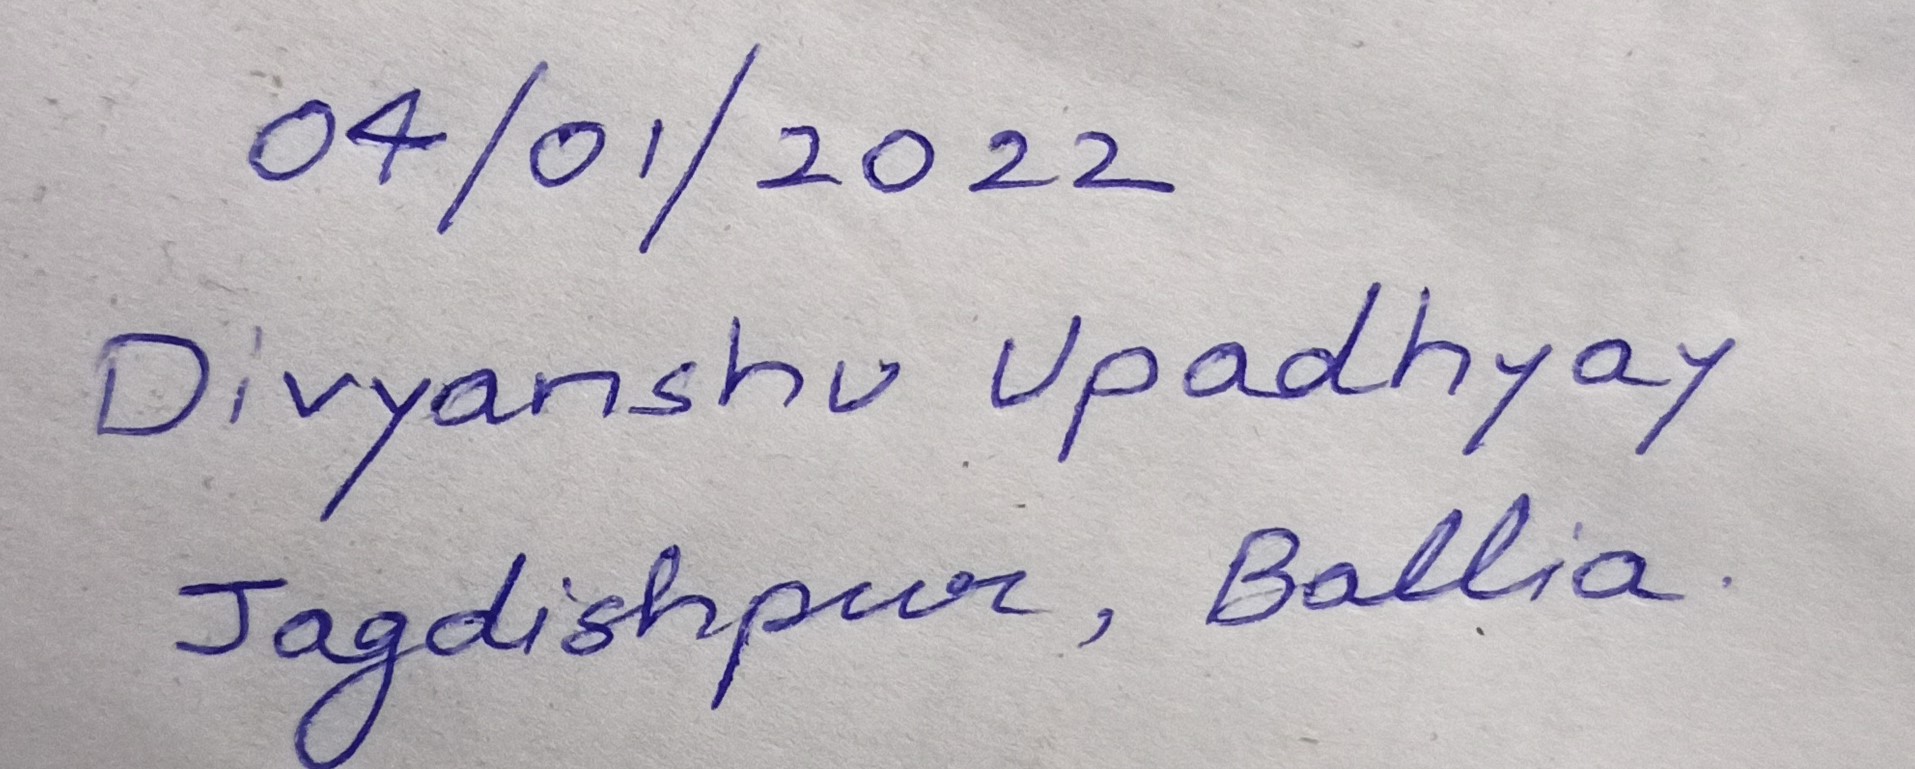 04/01/2022
Divyanshu Upadhyay
Jagdishpur, Ballia.